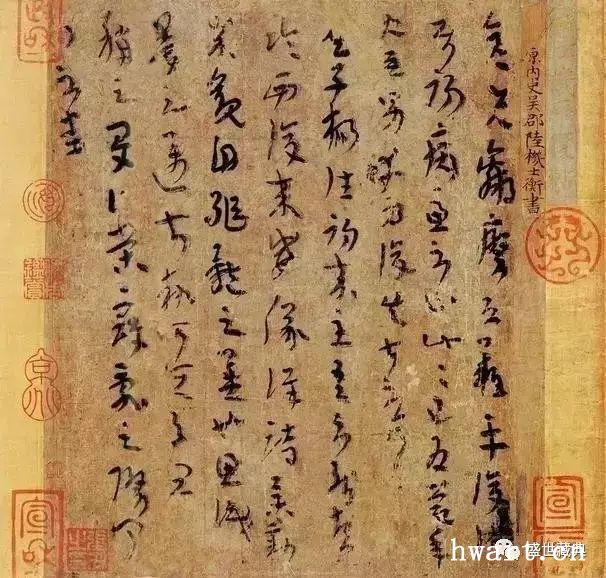 晉內史吳郡陸機士衡書
彥先羸瘵恐難平復往屬
初病慮不止此此已為慶承
使唯男幸為復失前憂耳
子楊往初來主吾不能盡
臨西復來威儀詳跱舉動
成觀自軀體之美也思識
量之邁前執所恒有宜
稱之夏伯榮寇亂之際聞
問不悉
盛世藏典